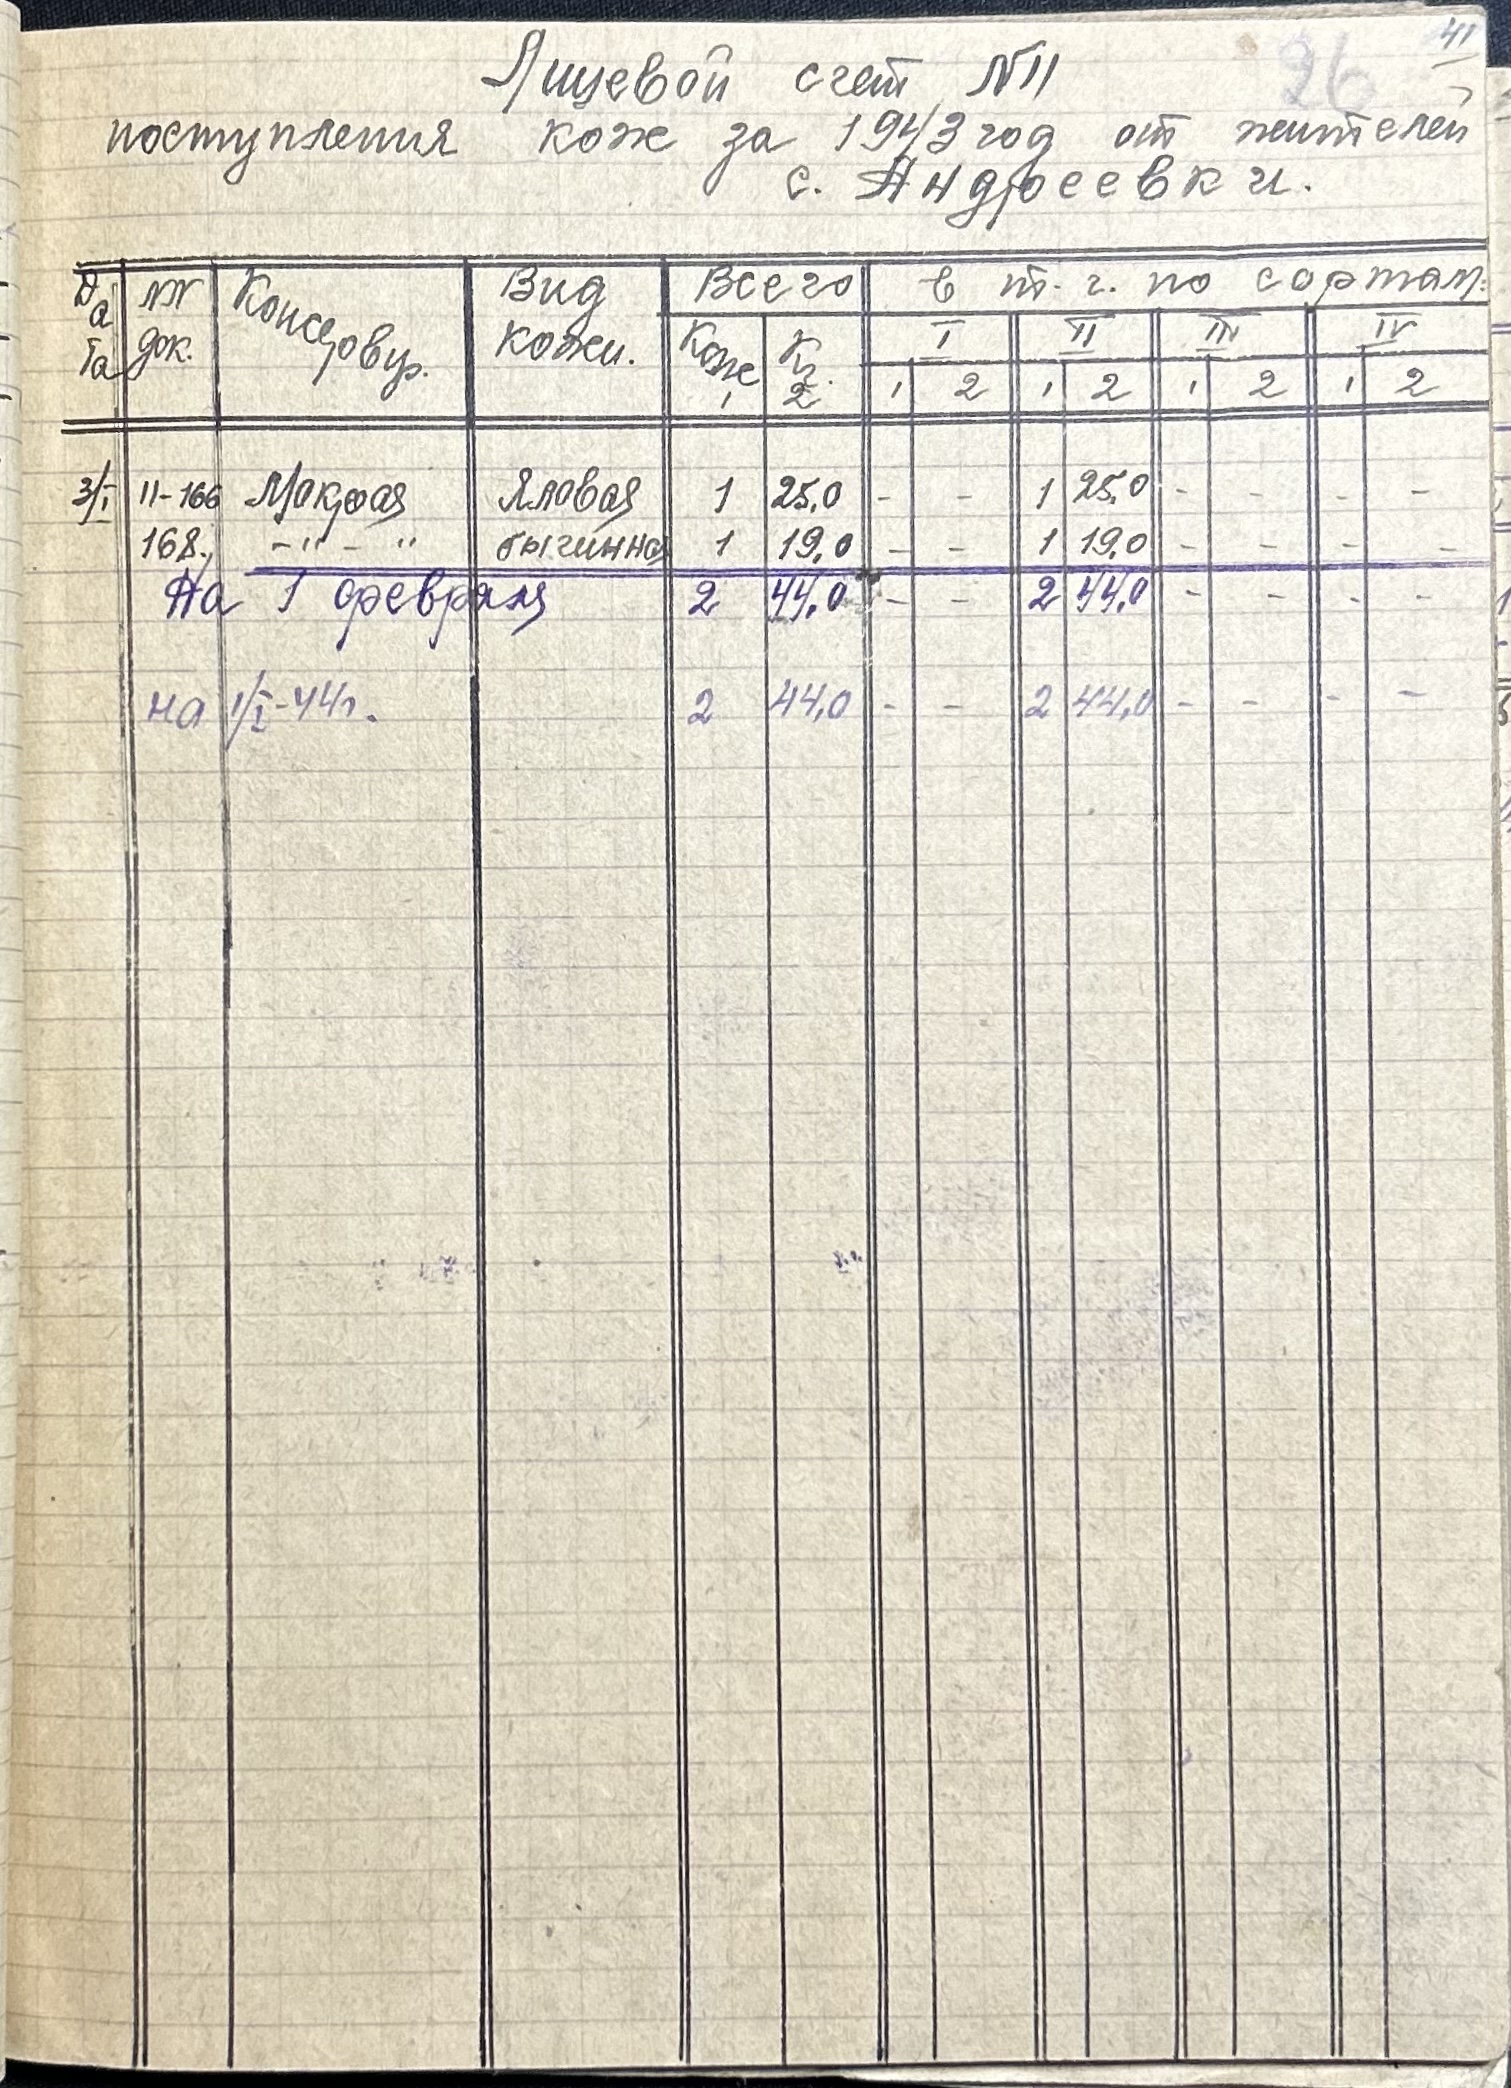 41
26
Лицевой счет № 11
поступления кож за 1943 год от жителей
с. Андреевки.
Дата №№ док. Консервир. Вид кожи. Всего в т. ч. по сортам:
Кож Кг. I II III IV
1 2 1 2 1 2 1 2 1 2
3/I 11-166 Мокрая Яловая 1 25,0 - - 1 25,0 - - - -
168. -"- " бычинна 1 19,0 - - 1 19,0 - - - -
На 1 февраля 2 44,0 - - 2 44,0 - - - -
на 1/I-44г. 2 44,0 - - 2 44,0 - - - -